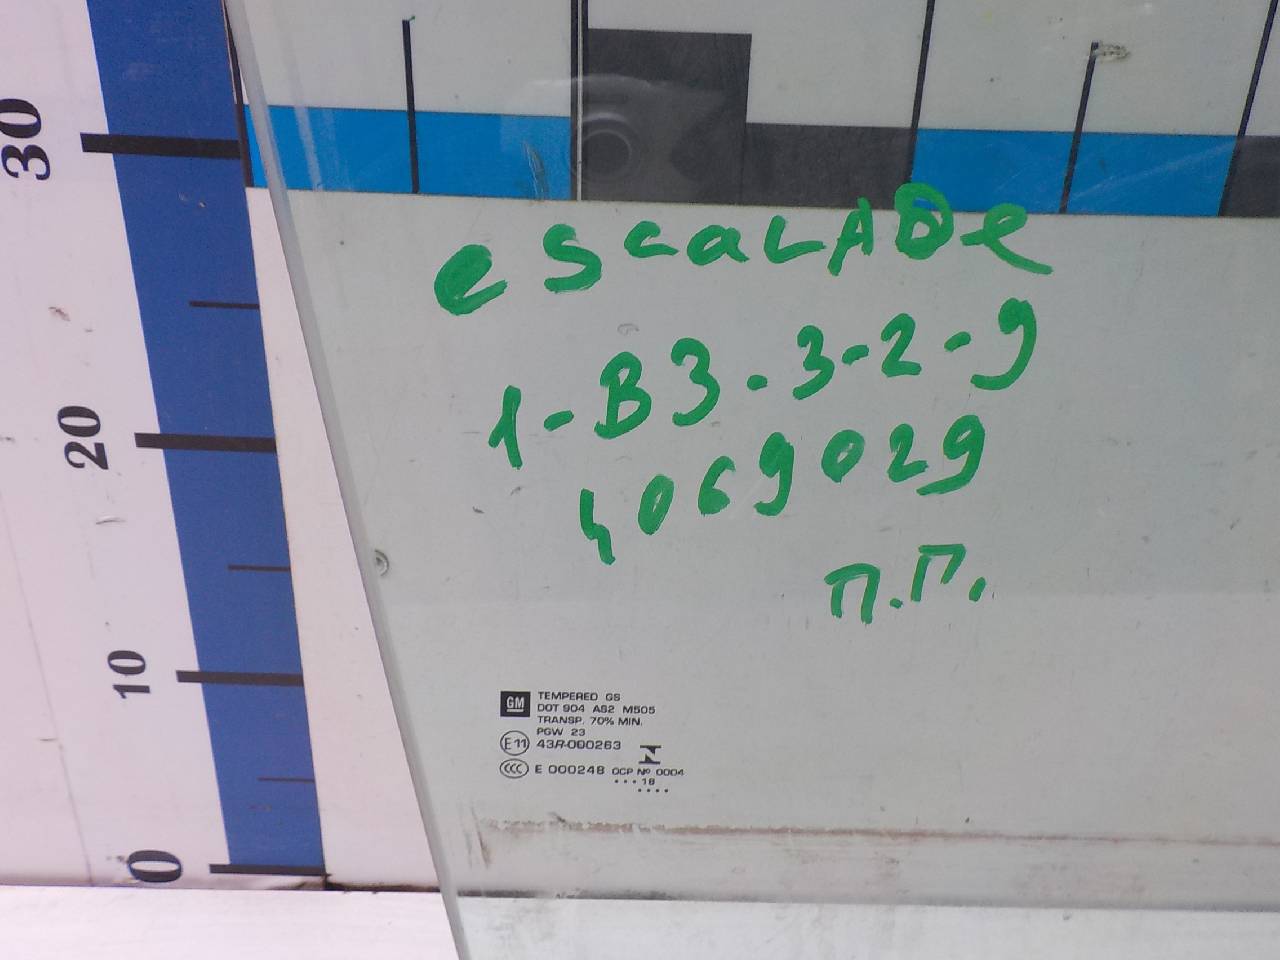 30
20
10
0
escaLADe
1-В3.3-2-9
4069029
п.п.
GM TEMPERED GS
DOT 904 AS2 M505
TRANSP. 70% MIN.
PGW 23
E11 43R-000263
CCC E 000248 OCP Nº 0004
...18
....